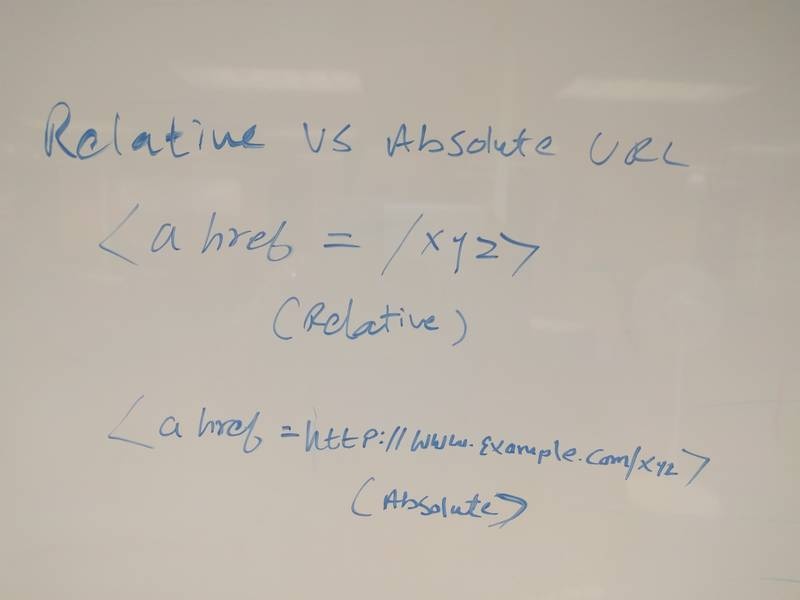 Relative vs Absolute URL
<a href = /xyz>
(Relative)
<a href = http://www.example.com/xyz>
(Absolute)